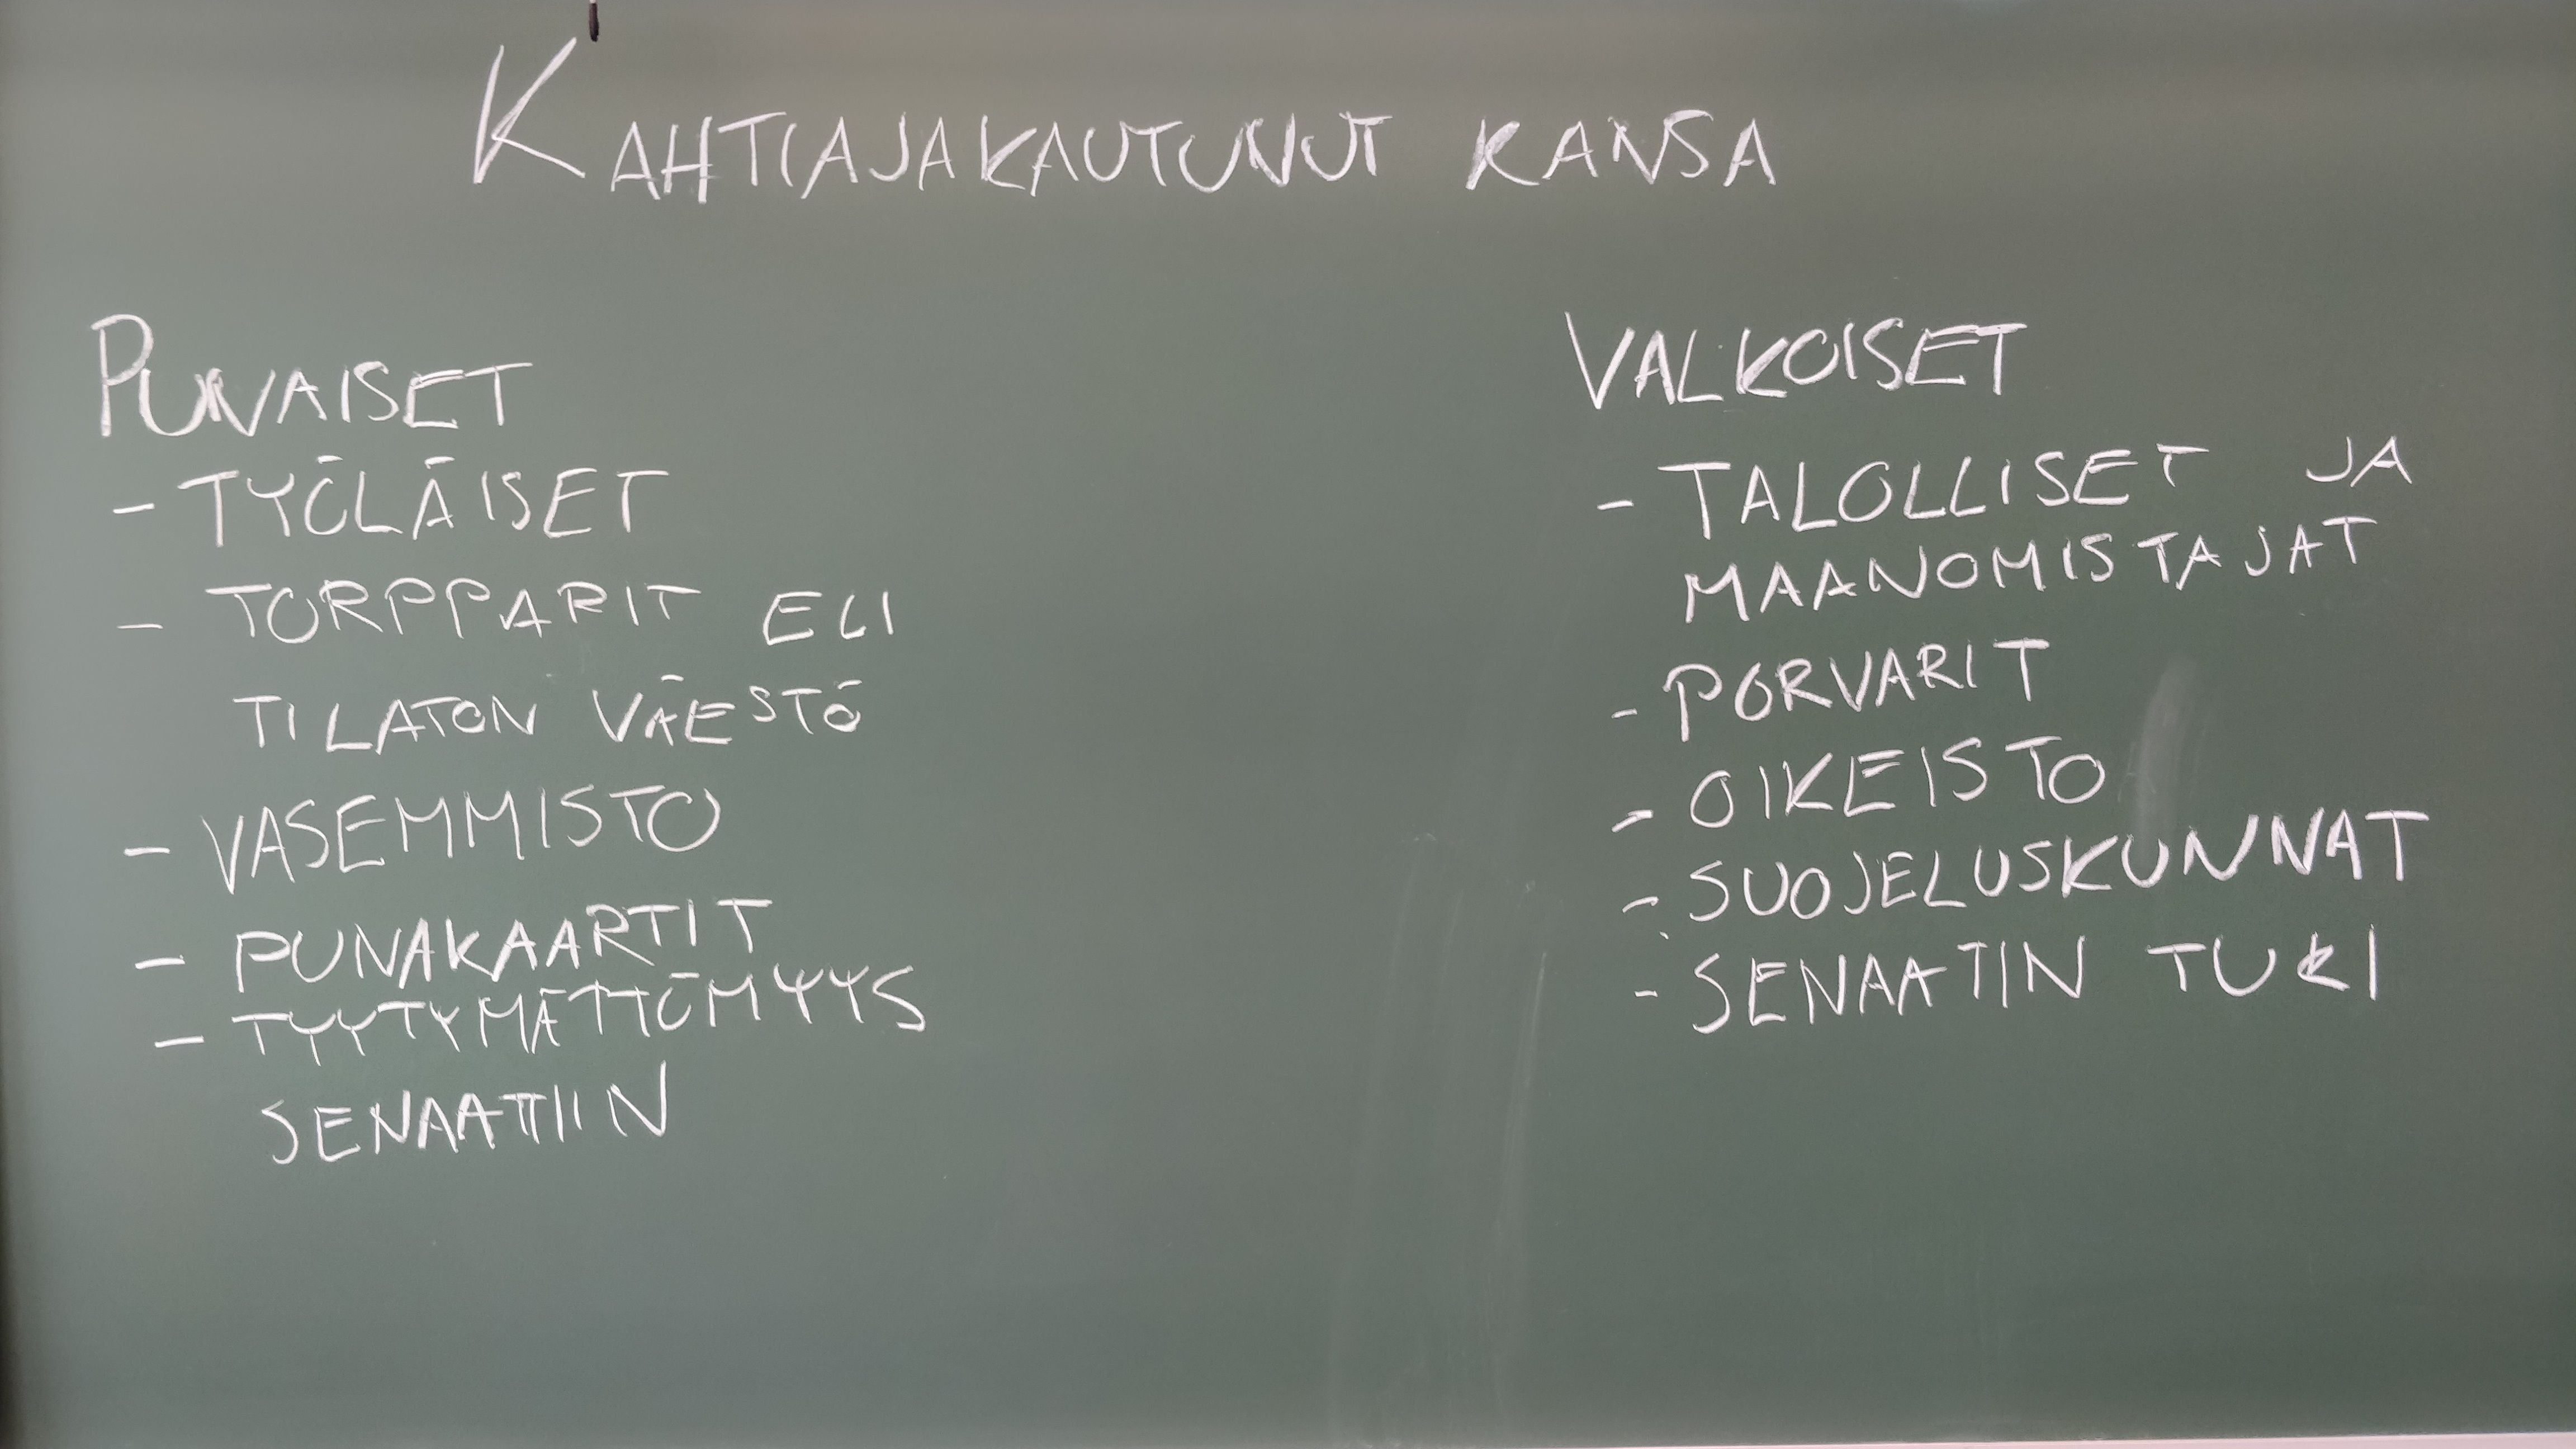 KAHTIAJAKAUTUNUT KANSA
PUNAISET
- TYÖLÄISET
- TORPPARIT ELI
TILATON VÄESTÖ
- VASEMMISTO
- PUNAKAARTIT
- TYYTYMÄTTÖMYYS
SENAATTIIN
VALKOISET
- TALOLLISET JA
MAANOMISTAJAT
- PORVARIT
- OIKEISTO
- SUOJELUSKUNNAT
- SENAATIN TUKI